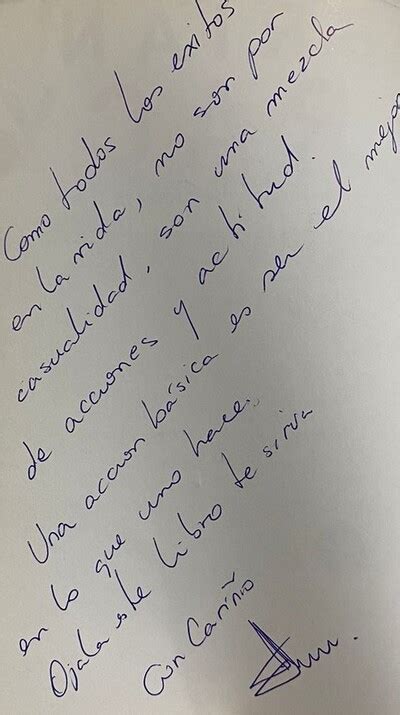 Como todos los exitos
en la vida, no son por
casualidad, son una mezcla
de acciones y actitud.
Una accion básica es ser el mejor
en lo que uno hace.
Ojala este libro te sirva
Con Cariño